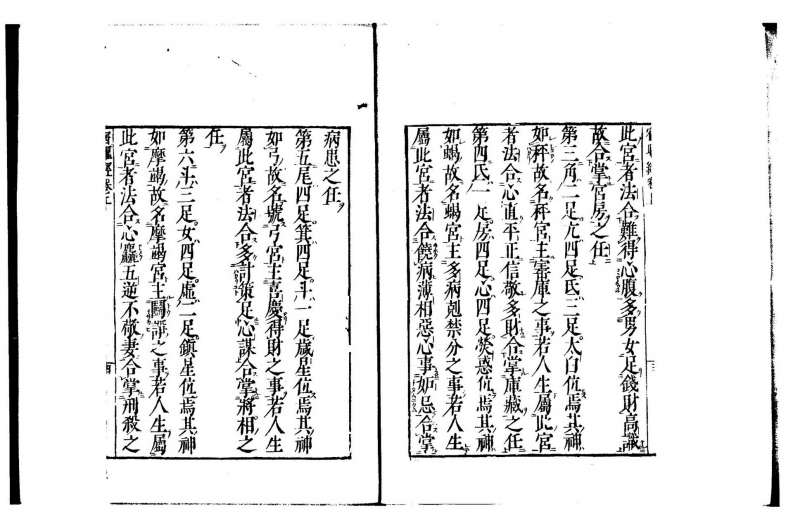 此宮者法合難得心腹多男女足錢財高識
故合掌宮房之任
第三角二足亢四足氐三足太白位焉其神
如秤故名秤宮主寶庫之事若人生屬此宮
者法合心直平正信敬多財合掌庫藏之任
第四氐一足房四足心四足熒惑位焉其神
如蝎故名蝎宮主多病剋禁分之事若人生
屬此宮者法合饒病薄相惡心事妬忌合掌
病患之任
第五尾四足箕四足斗一足歲星位焉其神
如弓故名號弓宮主喜慶得財之事若人生
屬此宮者法合多計策足心謀合掌將相之
任
第六斗三足女四足虛二足鎮星位焉其神
如摩竭故名摩竭宮主鬪諍之事若人生屬
此宮者法合心麤五逆不敬妻合掌刑殺之